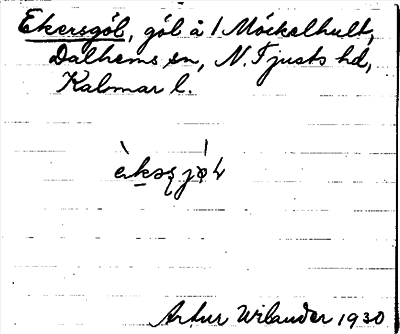 Ekersgöl, göl å 1 Möckelhult,
Dalhems sn, N. Tjusts hd,
Kalmar l.
Artur Wilander 1930